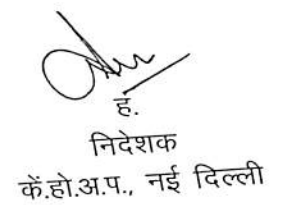 ह.
निदेशक
कें.हो.अ.प., नई दिल्ली